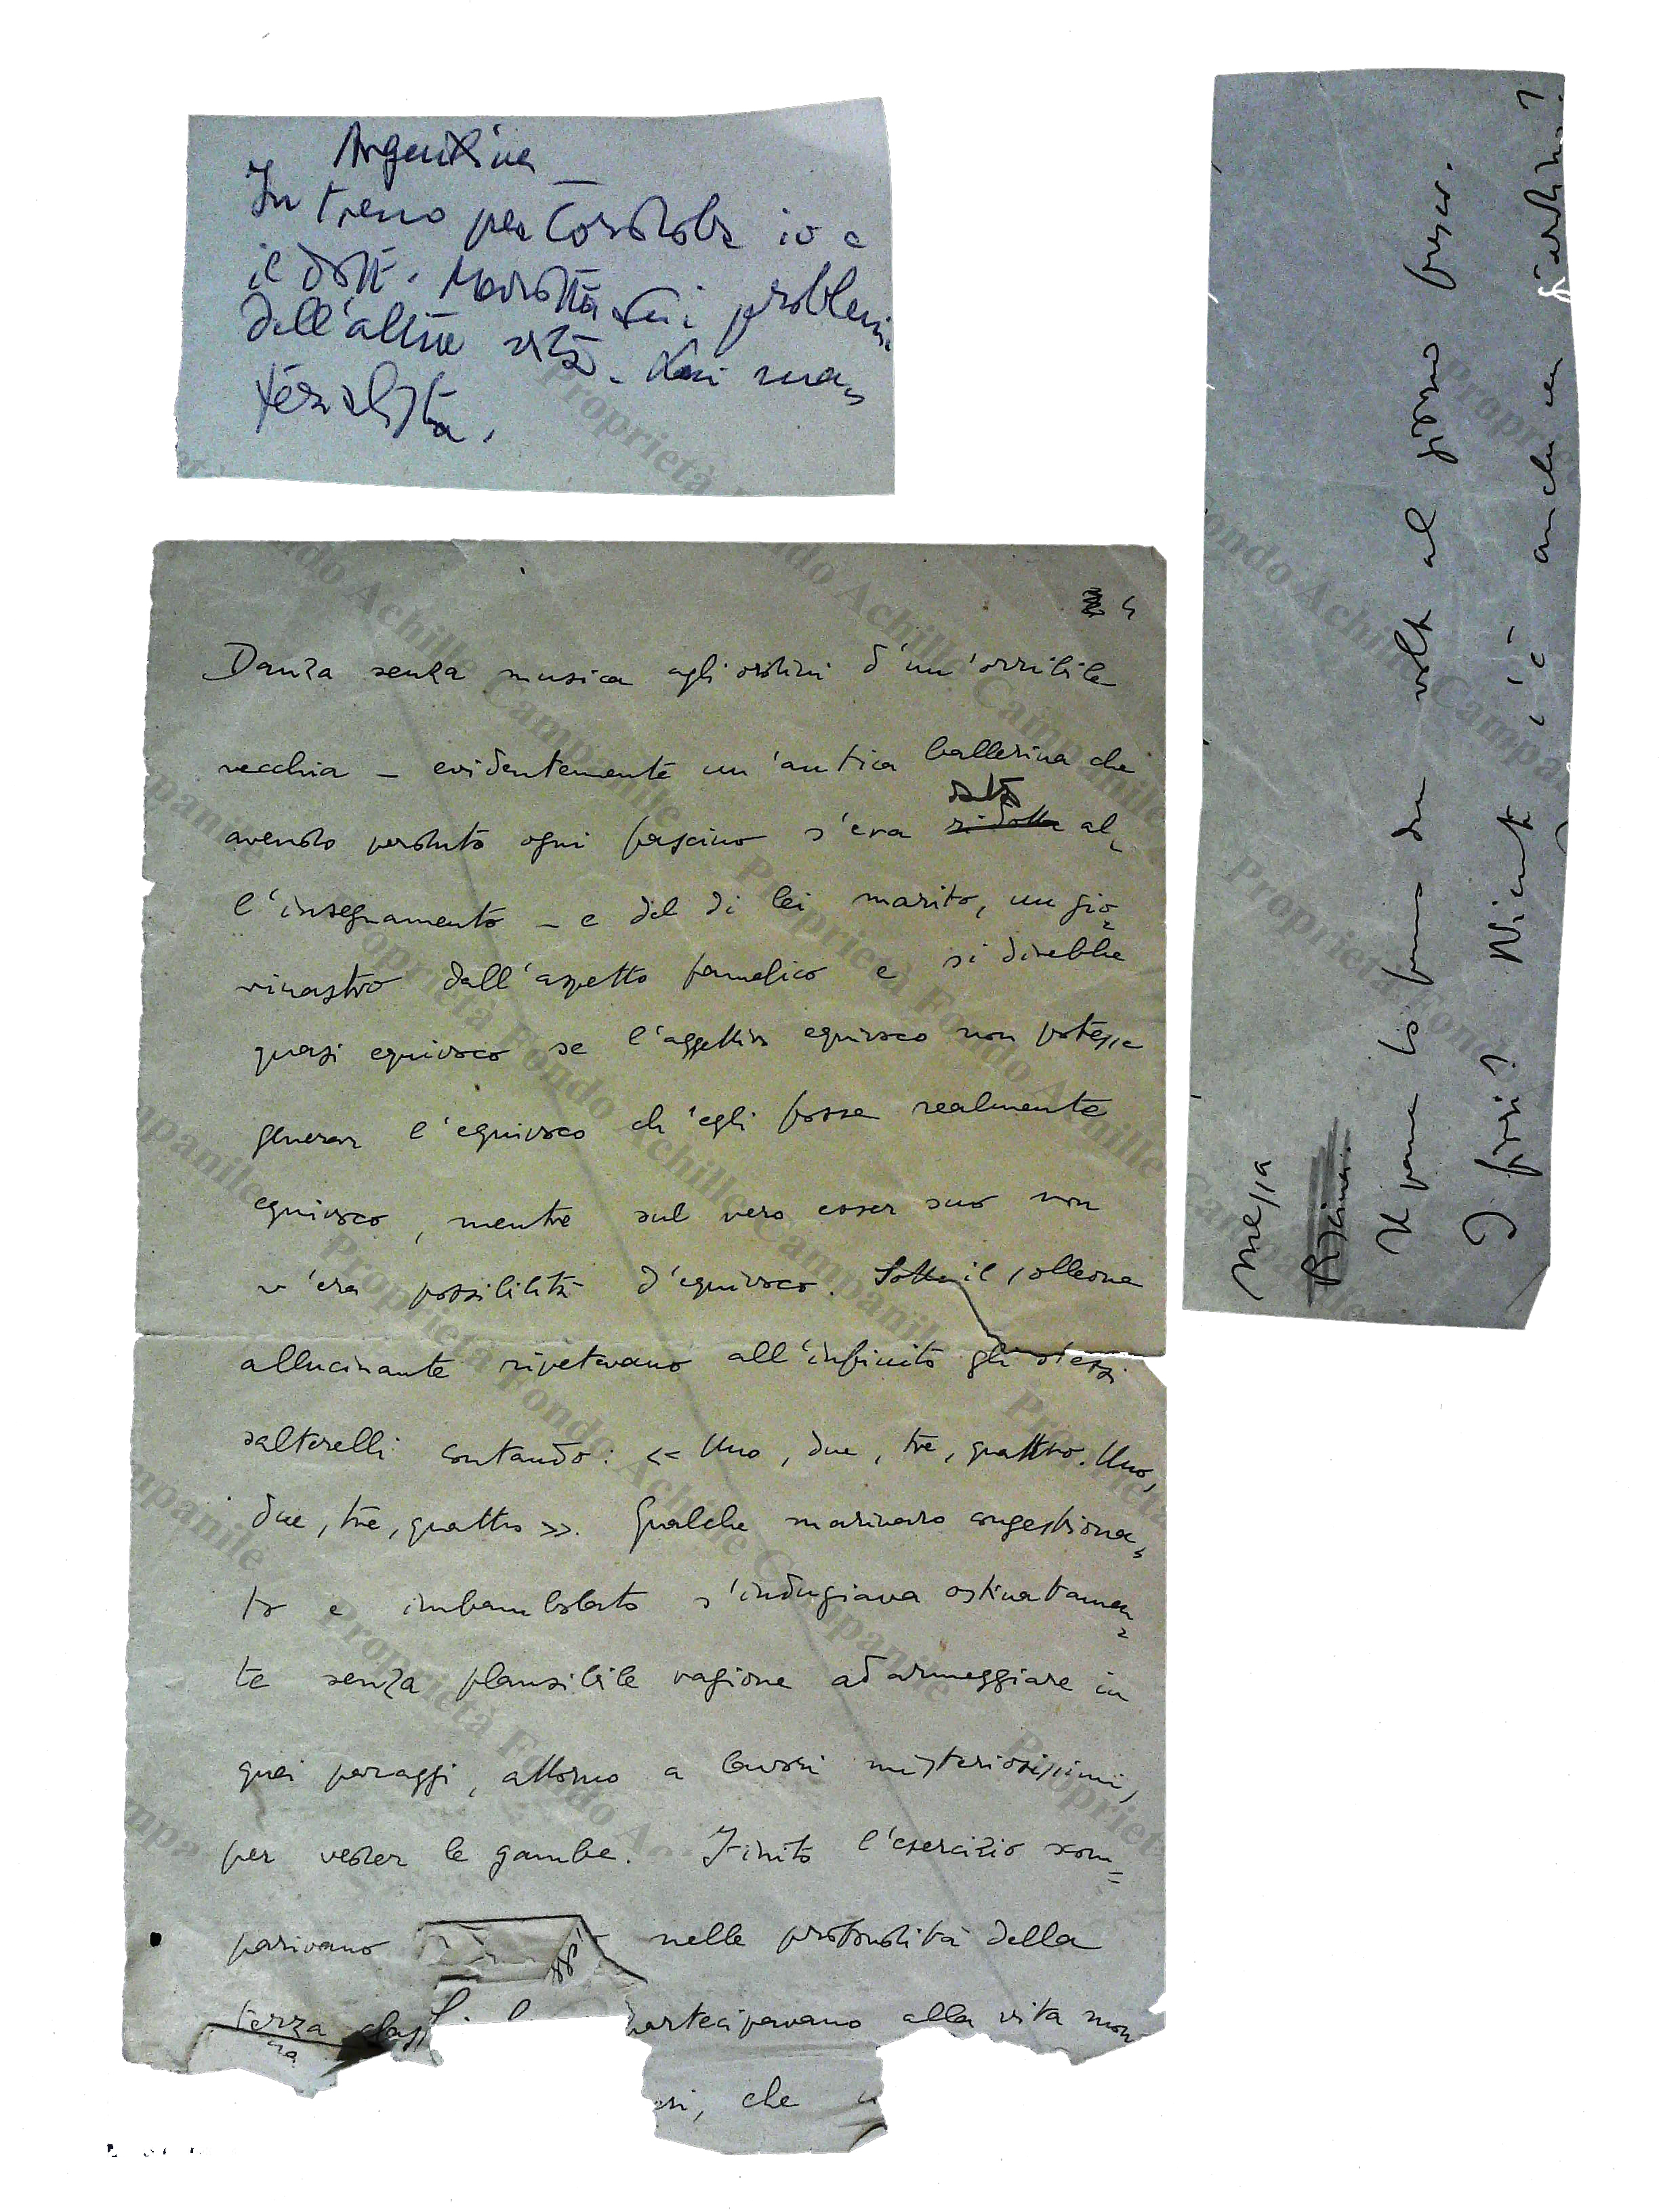 Argentina
In treno per Cordoba io e
il dott. Marotta sui problemi
dell'altra vita. Lui ma-
terialista.
4
Danza senza musica agli ordini d'un'orribile
vecchia – evidentemente un'antica ballerina che
avendo perduto ogni fascino s'era data al-
l'insegnamento – e del di lei marito, un gio-
vinastro dall'aspetto famelico e si direbbe
quasi equivoco se l'aggettivo equivoco non potesse
generar l'equivoco ch'egli fosse realmente
equivoco, mentre sul vero esser suo non
v'era possibilità d'equivoco. Sotto il solleone
allucinante ripetevano all'infinito gli stessi
salterelli contando: « Uno, due, tre, quattro. Uno,
due, tre, quattro ». Qualche marinaro congestiona-
to e imbambolato s'indugiava ostinatamen-
te senza plausibile ragione ad armeggiare in
quei paraggi, attorno a lavori misteriosissimi,
per veder le gambe. Finito l'esercizio scom-
parivano nelle profondità della
terza partecipavano alla vita mon
che
messa
Il pane lo fanno due volte al giorno fresco.
I fiori? Niente, c'è anche un giardino?
Proprietà Fondo Achille Campanile